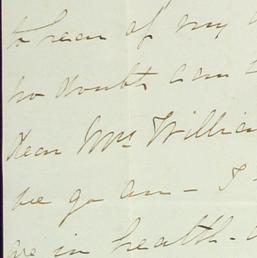 to hear of my
no doubt am
dear Mrs William
we go on - I
are in health -